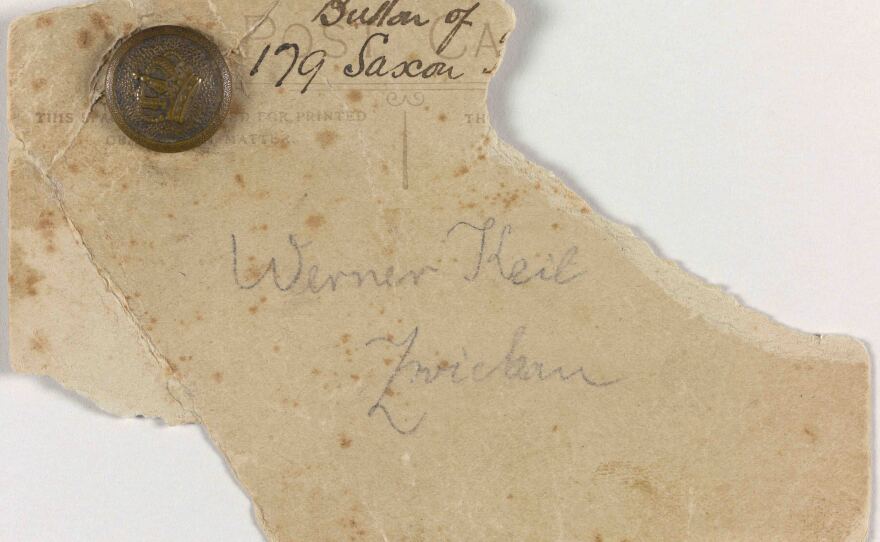 Button of
179 Saxon
POST CA
THIS SPA D FOR PRINTED
MATTER.
TH
Werner Keil
Zwickau